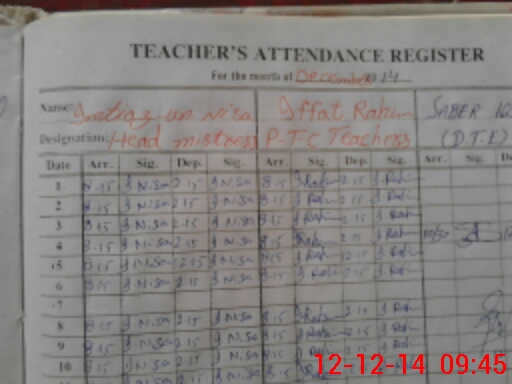 TEACHER'S ATTENDANCE REGISTER
For the month of December 2014
Name: Imtiaz-un-Nisa Iffat Rahim SABER
Designation: Head mistress P-T-C Teachers (D.T.E)
Date Arr. Sig. Dep. Sig. Arr. Sig. Dep. Sig. Arr. Sig. De
1 8.15 I Nisa 2.15 I Nisa 8.15 I Rahim 2.15 I Rahim
2 8.15 I Nisa 2.15 I Nisa 8.15 I Rahim 2.15 I Rahim
3 8.15 I Nisa 2.15 I Nisa 8.15 I Rahim 2.15 I Rahim
4 8.15 I Nisa 2.15 I Nisa 8.15 I Rahim 2.15 I Rahim
5 8.15 I Nisa 12.15 I Nisa 8.15 I Rahim 12.15 I Rahim
6 8.15 I Nisa 2.15 I Nisa 8.15 I Rahim 2.15 I Rahim
7
8 8.15 I Nisa 2.15 I Nisa 8.15 I Rahim 2.15 I Rahim
9 8.15 I Nisa 2.15 I Nisa 8.15 I Rahim 2.15 I Rahim
10 8.15 I Nisa 2.15 I Nisa 8.15 I Rahim 2.15 I Rahim
12-12-14 09:45